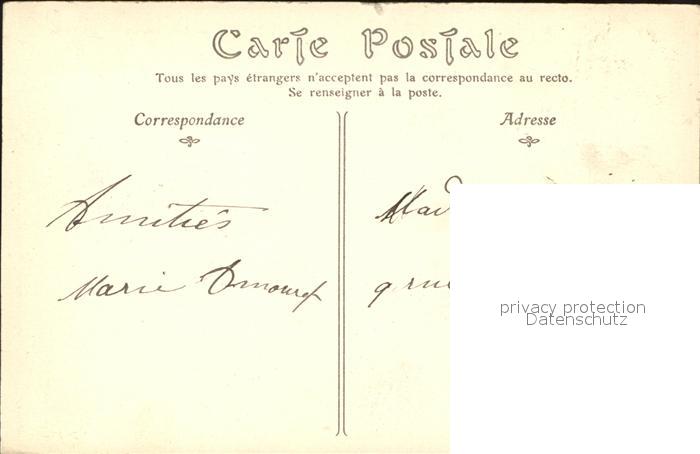 Carte Postale
Tous les pays étrangers n'acceptent pas la correspondance au recto.
Se renseigner à la poste.
Correspondance
Adresse
Amitiés
Marie
9 rue
privacy protection
Datenschutz